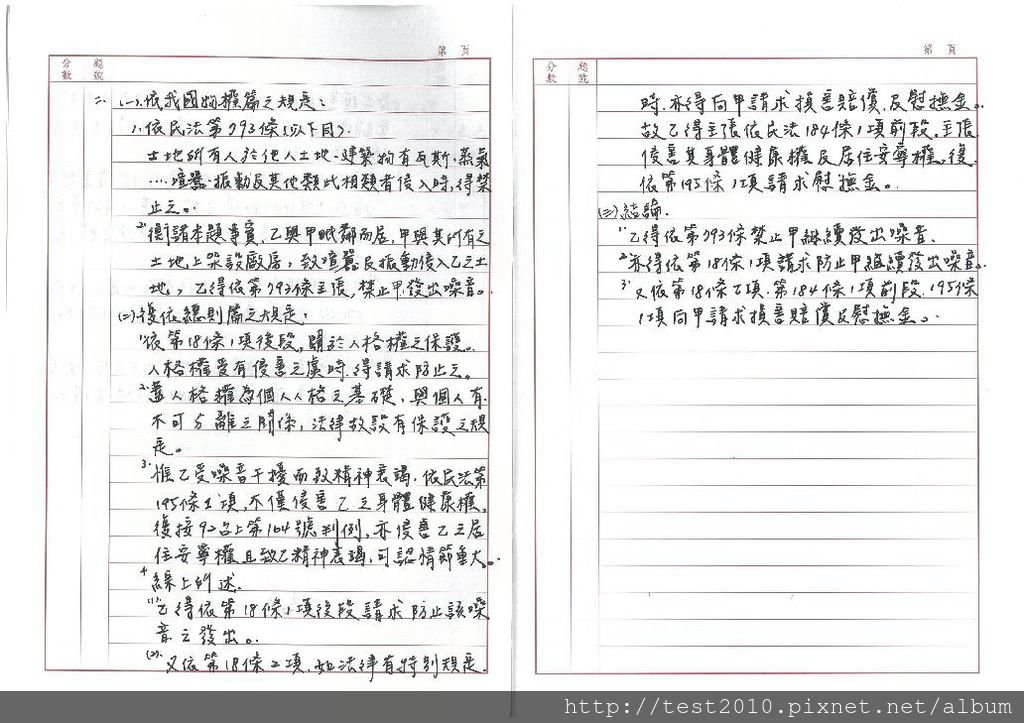 第 頁
分數 題號
二、(一)、依我國物權篇之規定：
1、依民法第793條(以下同)、
土地所有人於他人土地、建築物有瓦斯、蒸氣
…喧囂、振動及其他類此相類者侵入時，得禁
止之。
2、復請本題事實，乙與甲毗鄰而居，甲與其所有之
土地上架設廠房，致喧囂及振動侵入乙之土
地，乙得依第793條主張，禁止甲發出噪音。
(二)、復依總則篇之規定：
1、依第18條1項後段，關於人格權之保護。
人格權受有侵害之虞時，得請求防止之。
2、蓋人格權為個人人格之基礎，與個人有
不可分離之關係，法律故設有保護之規
定。
3、惟乙受噪音干擾而致精神衰竭，依民法第
195條1項，不僅侵害乙之身體健康權，
復按92台上第164號判例，亦侵害乙之居
住安寧權且致乙精神衰竭，可認情節重大。
4、綜上所述，
(1)、乙得依第18條1項後段請求防止該噪
音之發出。
(2)、又依第18條2項，如法律有特別規定
第 頁
分數 題號
時，亦得向甲請求損害賠償及慰撫金。
故乙得主張依民法184條1項前段，主張
侵害其身體健康權及居住安寧權，復
依第195條1項請求慰撫金。
(三)、結論、
1、乙得依第793條禁止甲繼續發出噪音、
2、亦得依第18條1項請求防止甲繼續發出噪音。
3、又依第18條2項、第184條1項前段、195條
1項向甲請求損害賠償及慰撫金。
http://test2010.pixnet.net/album